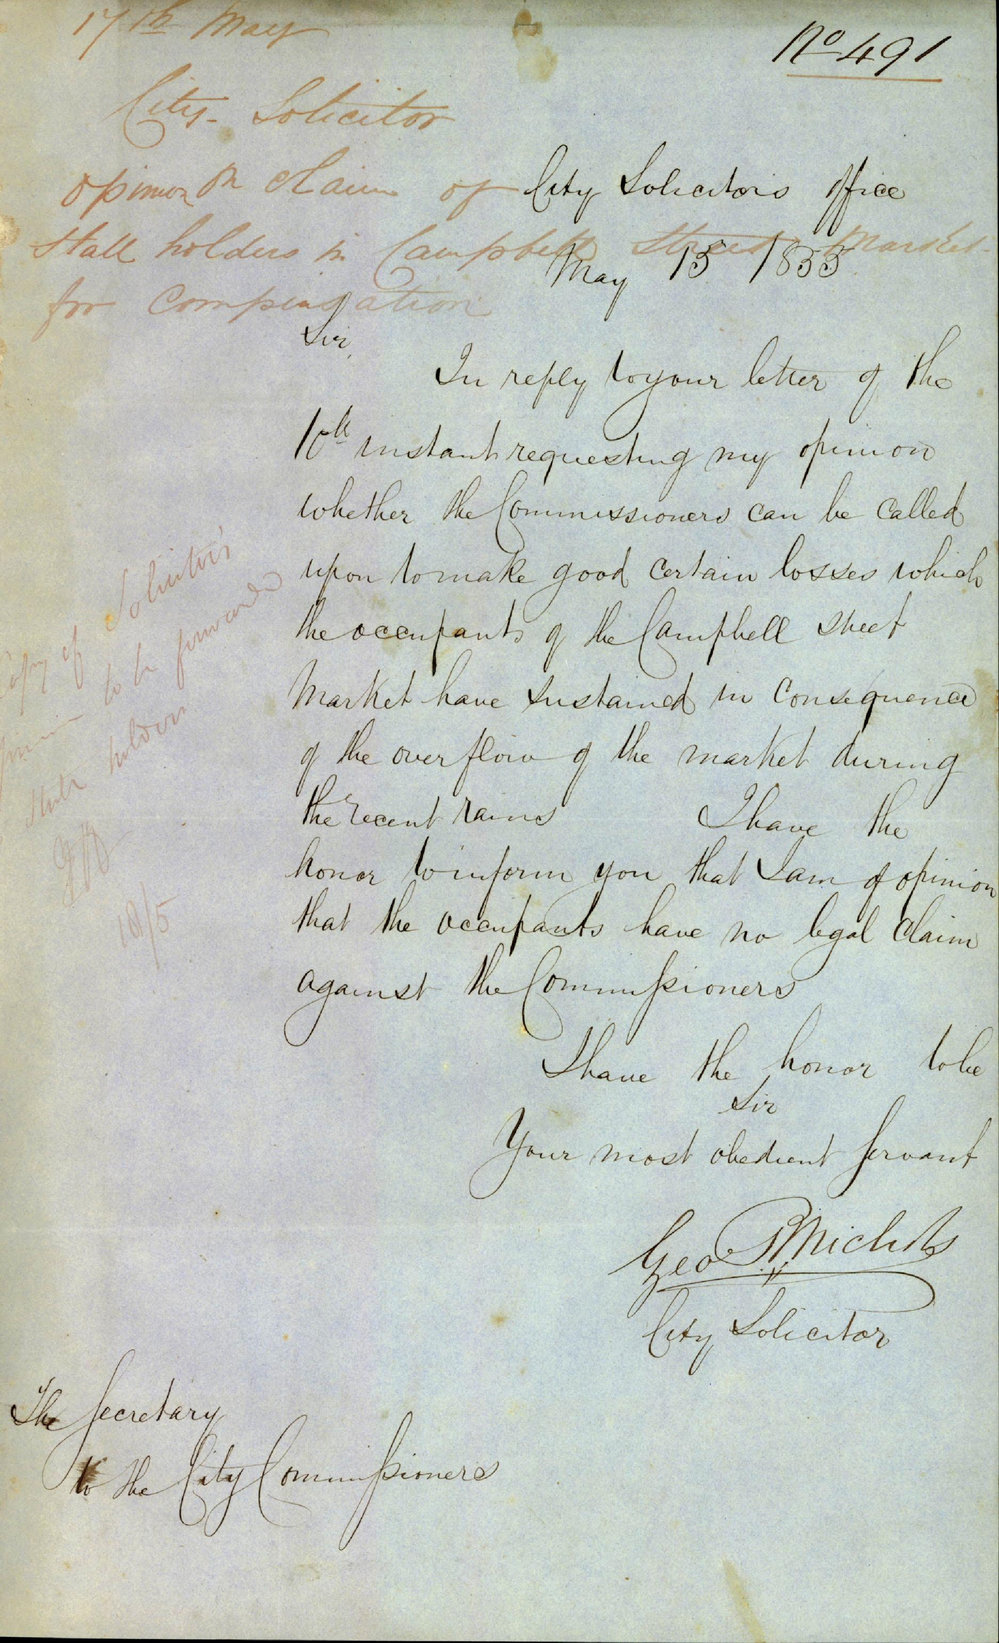 17th May
No 491
City Solicitor
opinion on claim of
Stall holders in Campbell Street Market
for compensation
City Solicitors Office
May 15 1855
Sir,
In reply to your letter of the
10th instant requesting my opinion
whether the Commissioners can be called
upon to make good certain losses which
the occupants of the Campbell street
Market have sustained in consequence
of the over flow of the market during
the recent rains I have the
honor to inform you that I am of opinion
that the occupants have no legal claim
against the Commissioners
I have the honor to be
Sir
Your most obedient servant
Geo R Nichols
City Solicitor
The Secretary
to the City Commissioners
Copy of Solicitor's
opinion to be forwarded
stall holders
18/5